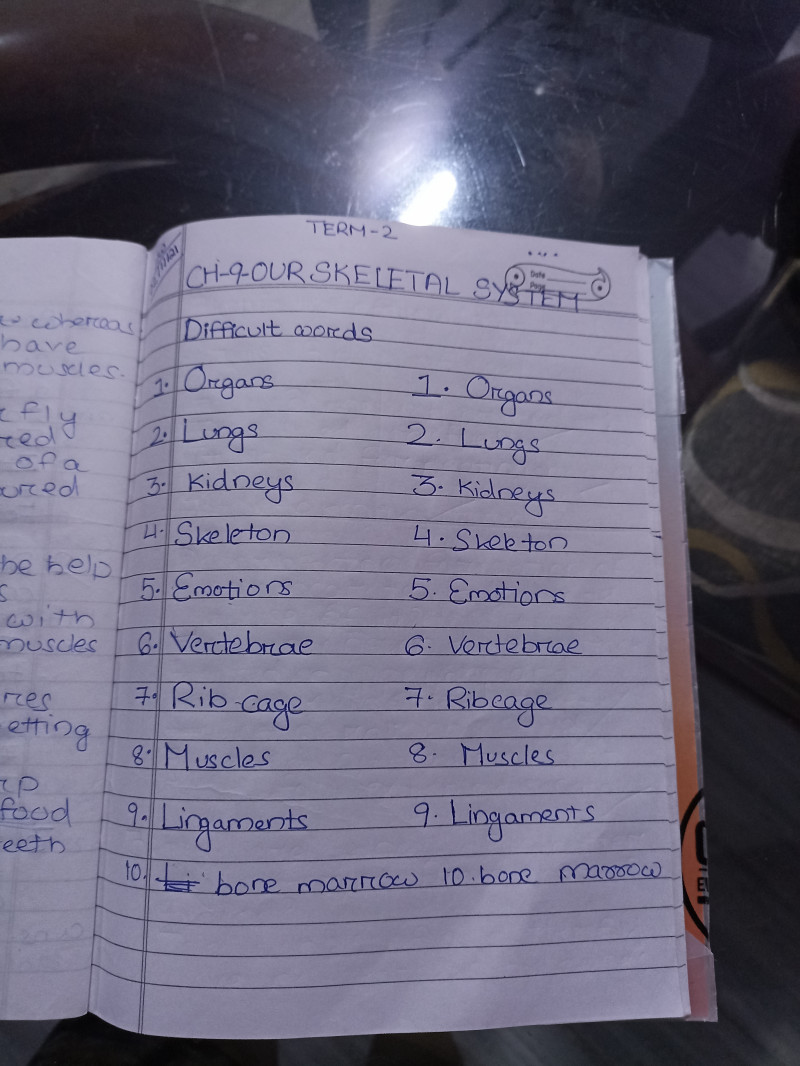 TERM-2
CH-9-OUR SKELETAL SYSTEM
Date
Page
Difficult words
1. Organs 1. Organs
2. Lungs 2. Lungs
3. Kidneys 3. Kidneys
4. Skeleton 4. Skeleton
5. Emotions 5. Emotions
6. Vertebrae 6. Vertebrae
7. Rib-cage 7. Ribcage
8. Muscles 8. Muscles
9. Lingaments 9. Lingaments
10. bone marrow 10. bone marrow
whereas
have
muscles.
fly
of a
be help
with
muscles
etting
food
eeth